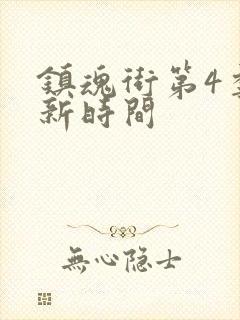 鎮魂街第4
新時間
無心隐士